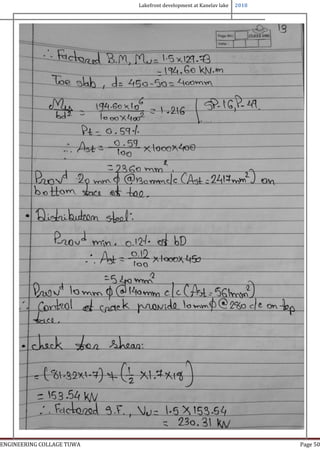 Lakefront development at Kanelav lake 2018
13
Page No.:
Date:
∴ Factored B.M, Mu = 1.5 × 129.73
= 194.60 kN.m
Toe slab, d = 450 - 50 = 400mm
Mu/bd² = 194.60×10⁶/1000×400² = 1.216 [SP.16, P.49.
Pt = 0.59%
∴ Ast = 0.59/100 × 1000×400
= 2360 mm².
Prov^d 20 mm ϕ @130mm c/c (Ast = 2417mm²) on
bottom face of toe.
• Distribution steel:
Prov^d min. 0.12% of bD
∴ Ast = 0.12/100 × 1000 × 450
= 540 mm²
Prov^d 10 mm ϕ @140mm c/c (Ast = 561mm²)
∴ Control of crack provide 10mm ϕ @280 c/c on top
face.
• check for shear:
= (-81.32×1.7) + (1/2 × 1.7×18)
= 153.54 kN
∴ Factored S.F., Vu = 1.5 × 153.54
= 230.31 kN
ENGINEERING COLLAGE TUWA Page 50